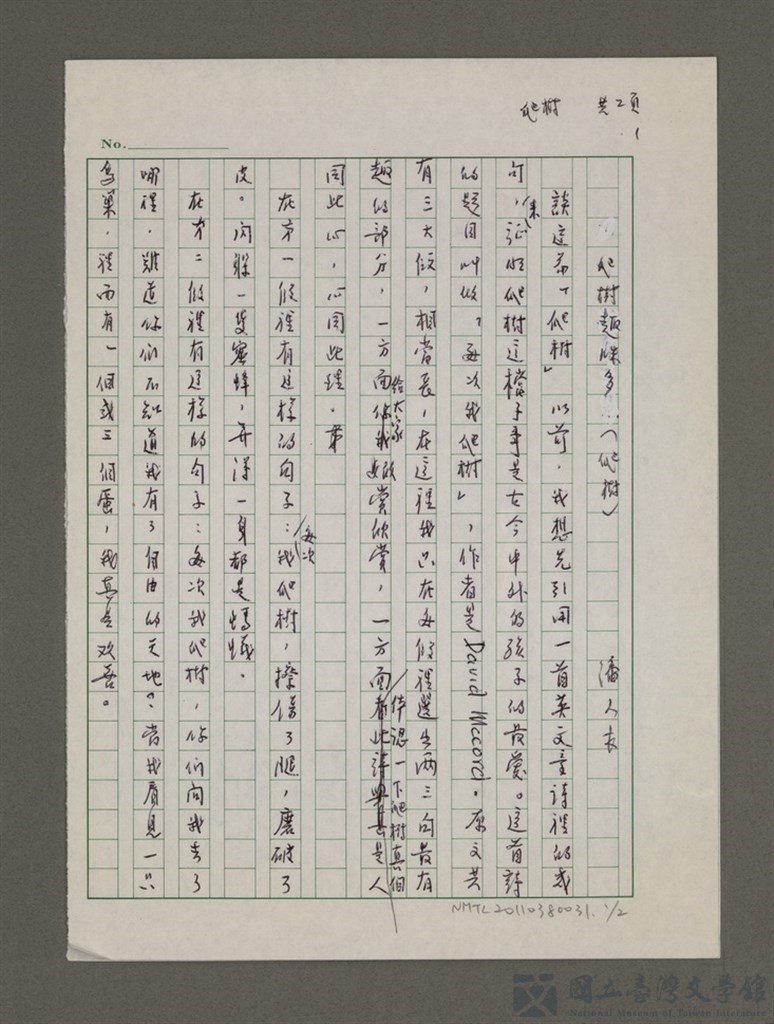 爬樹　共2頁
1
No.
爬樹趣味多…（爬樹）　潘人木
談這首「爬樹」以前，我想先引用一首英文童詩裡的幾
句，來証明爬樹這檔子事是古今中外的孩子的最愛。這首詩
的題目叫做「每次我爬樹」，作者是David Mccord。原文共
有三大段，相當長，在這裡我只在每段裡選出兩三句最有
趣的部分，一方面給大家欣賞欣賞，一方面体認一下爬樹真個是人
同此心，心同此理。第
在第一段裡有這樣的句子：每次我爬樹，擦傷了腿，磨破了
皮。閃躲一隻蜜蜂，弄得一身都是螞蟻。
在第二段裡有這樣的句子：每次我爬樹，你們問我去了
哪裡，難道你們不知道我有了自由的天地？當我看見一只
鳥巢，裡面有一個或三個蛋，我真是歡喜。
NMTL20110380031. 1/2
國立臺灣文學館
National Museum of Taiwan Literature